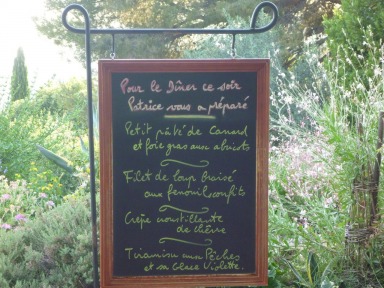 Pour le Dîner ce soir
Patrice vous a préparé
Petit pâté de Canard
et foie gras aux abricots
Filet de loup braisé
aux fenouil confits
Crêpe croustillante
de chèvre
Tiramisu aux Pêches
et sa Glace Violette.